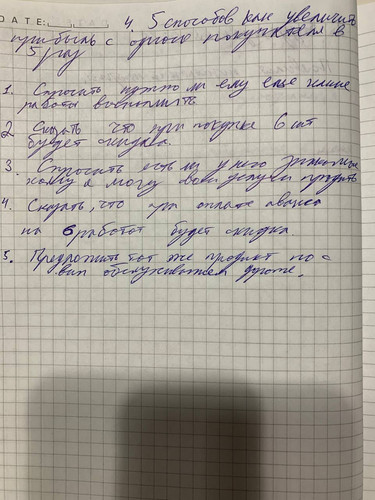 DATE:
4. 5 способов как увеличить
прибыль с одного покупателя в
5 раз
1. Спросить нужно ли ему еще какие
работы выполнить
2 Сказать что при покупке 6 шт
будет скидка.
3. Спросить есть ли у него знакомые
кому я могу свои услуги продать
4. Сказать, что при оплате аванса
на 6 работ будет скидка
5. Предложить тот же продукт но с
вип обслуживанием дороже.